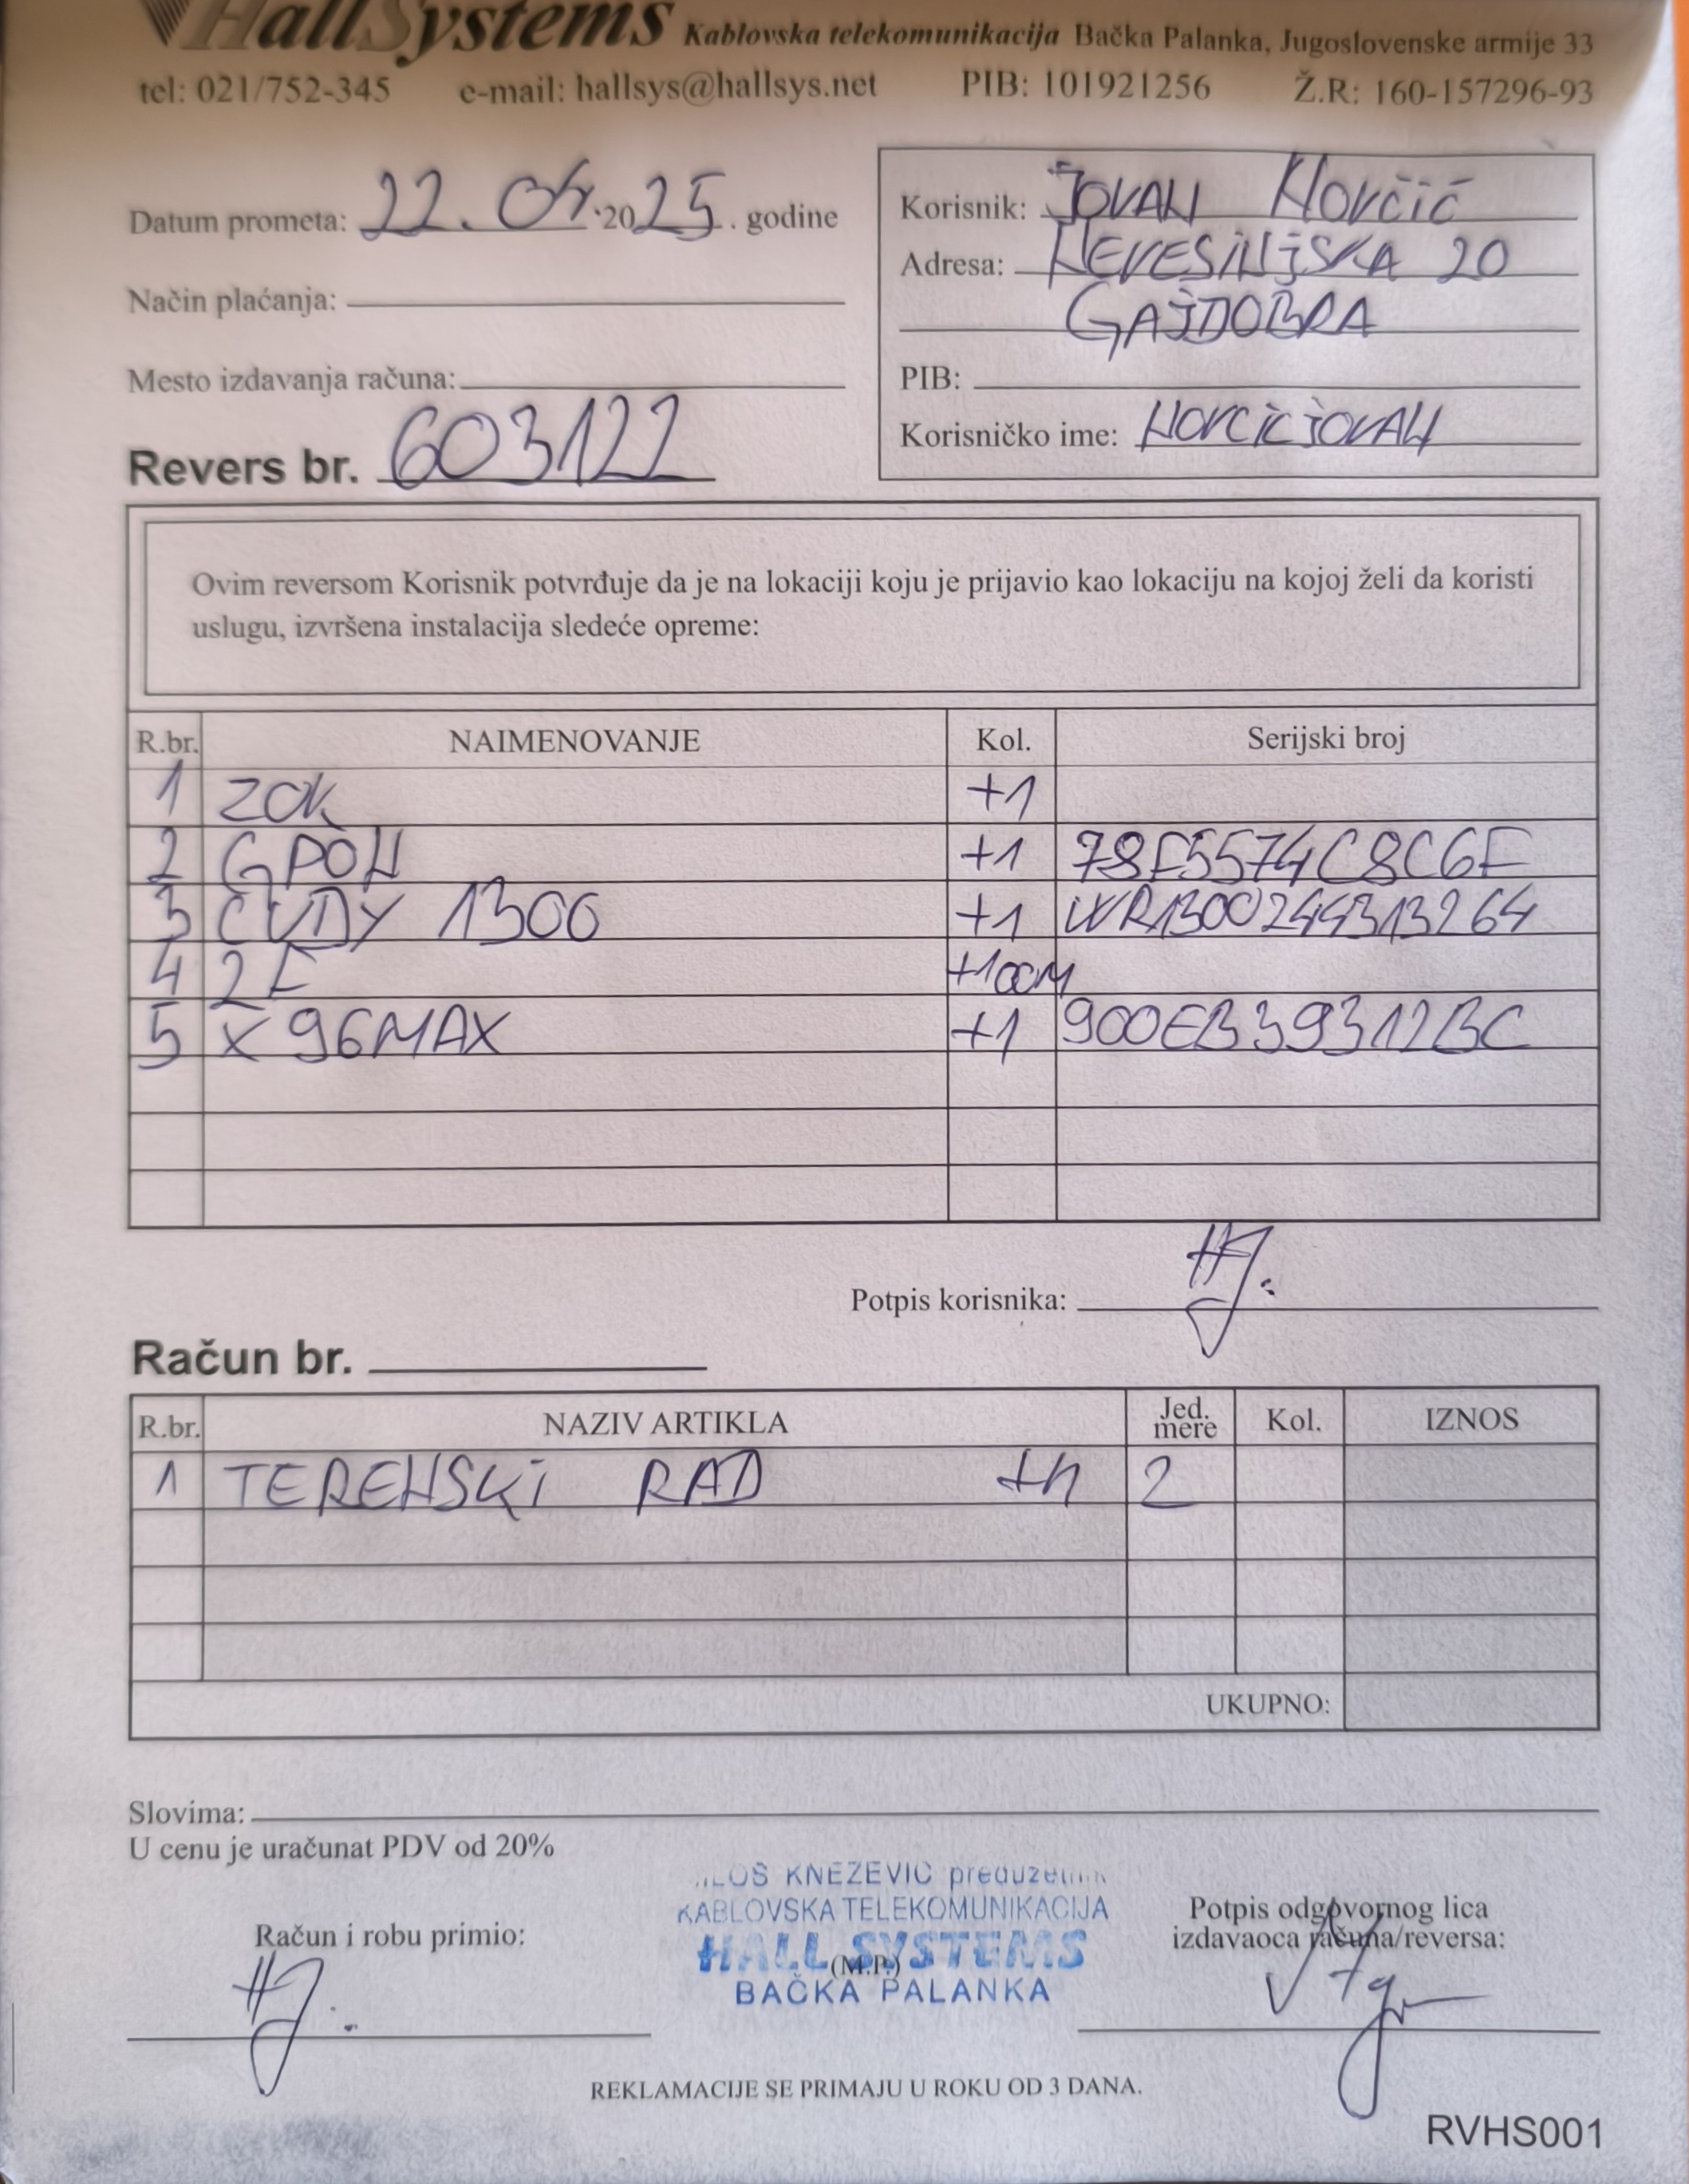 HallSystems Kablovska telekomunikacija Bačka Palanka, Jugoslovenske armije 33
tel: 021/752-345 e-mail: hallsys@hallsys.net PIB: 101921256 Ž.R: 160-157296-93
Datum prometa: 22.04.2025. godine
Način plaćanja:
Mesto izdavanja računa:
Revers br. 603122
Korisnik: JOVAN Novčić
Adresa: NEVESINjSKA 20
GAJDOBRA
PIB:
Korisničko ime: NOVCICJOVAN
Ovim reversom Korisnik potvrđuje da je na lokaciji koju je prijavio kao lokaciju na kojoj želi da koristi
uslugu, izvršena instalacija sledeće opreme:
R.br. NAIMENOVANJE Kol. Serijski broj
1 ZOK +1
2 GPON +1 78F5574C8C6F
3 CUDY 1300 +1 WR1300244313264
4 2F +100M
5 X96MAX +1 900EB39312BC
Potpis korisnika:
Račun br.
R.br. NAZIV ARTIKLA Jed. mere Kol. IZNOS
1 TERENSKI RAD +h 2
UKUPNO:
Slovima:
U cenu je uračunat PDV od 20%
Račun i robu primio:
KNEZEVIC preduzetnik
KABLOVSKA TELEKOMUNIKACIJA
HALL SYSTEMS
(M.P.)
BAČKA PALANKA
Potpis odgovornog lica
izdavaoca računa/reversa:
REKLAMACIJE SE PRIMAJU U ROKU OD 3 DANA.
RVHS001